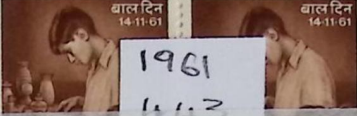 बाल दिन
14·11·61
बाल दिन
14·11·61
1961
443